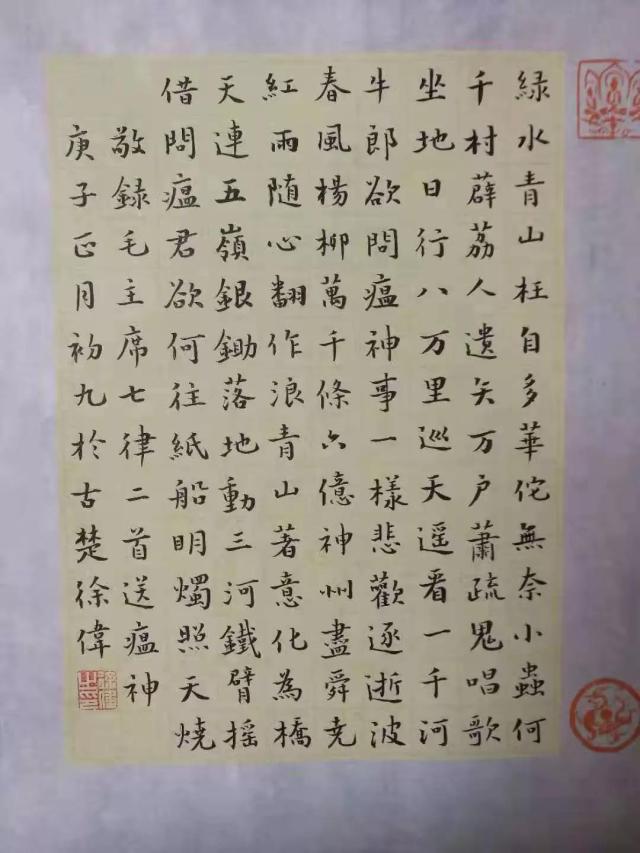 綠水青山枉自多華佗無奈小蟲何
千村薜荔人遺矢万戶蕭疏鬼唱歌
坐地日行八万里巡天遥看一千河
牛郎欲問瘟神事一樣悲歡逐逝波
春風楊柳萬千條六億神州盡舜尭
紅雨随心翻作浪青山著意化為橋
天連五嶺銀鋤落地動三河鐵臂摇
借問瘟君欲何往紙船明燭照天燒
敬録毛主席七律二首送瘟神
庚子正月初九於古楚徐偉